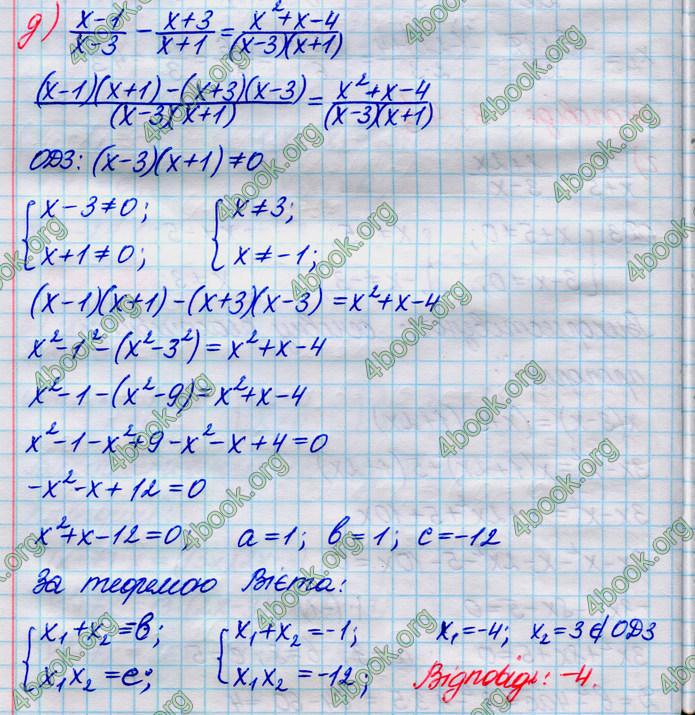 д) (x-1)/(x-3) - (x+3)/(x+1) = (x²+x-4)/((x-3)(x+1))
((x-1)(x+1)-(x+3)(x-3))/((x-3)(x+1)) = (x²+x-4)/((x-3)(x+1))
ОДЗ: (x-3)(x+1)≠0
{x-3≠0; {x≠3;
x+1≠0; x≠-1;
(x-1)(x+1)-(x+3)(x-3)=x²+x-4
x²-1²-(x²-3²)=x²+x-4
x²-1-(x²-9)=x²+x-4
x²-1-x²+9-x²-x+4=0
-x²-x+12=0
x²+x-12=0; a=1; b=1; c=-12
За теоремою Вієта:
{x₁+x₂=b; {x₁+x₂=-1; x₁=-4; x₂=3∉ОДЗ
x₁x₂=c; x₁x₂=-12; Відповідь: -4.
4book.org